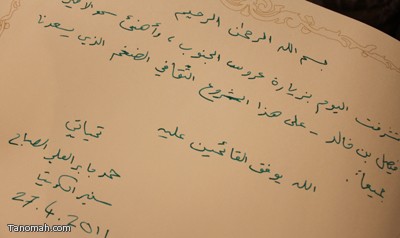 بسم الله الرحمن الرحيم
تشرفت اليوم بزيارة عروس الجنوب، وأهنئ سمو الأمير
فيصل بن خالد - على هذا المشروع الثقافي الضخم الذي يسعدنا
جميعاً.
الله يوفق القائمين عليه
تحياتي
حمد جابر العلي الصباح
سفير الكويت
27.4.2011
Tanomah.com